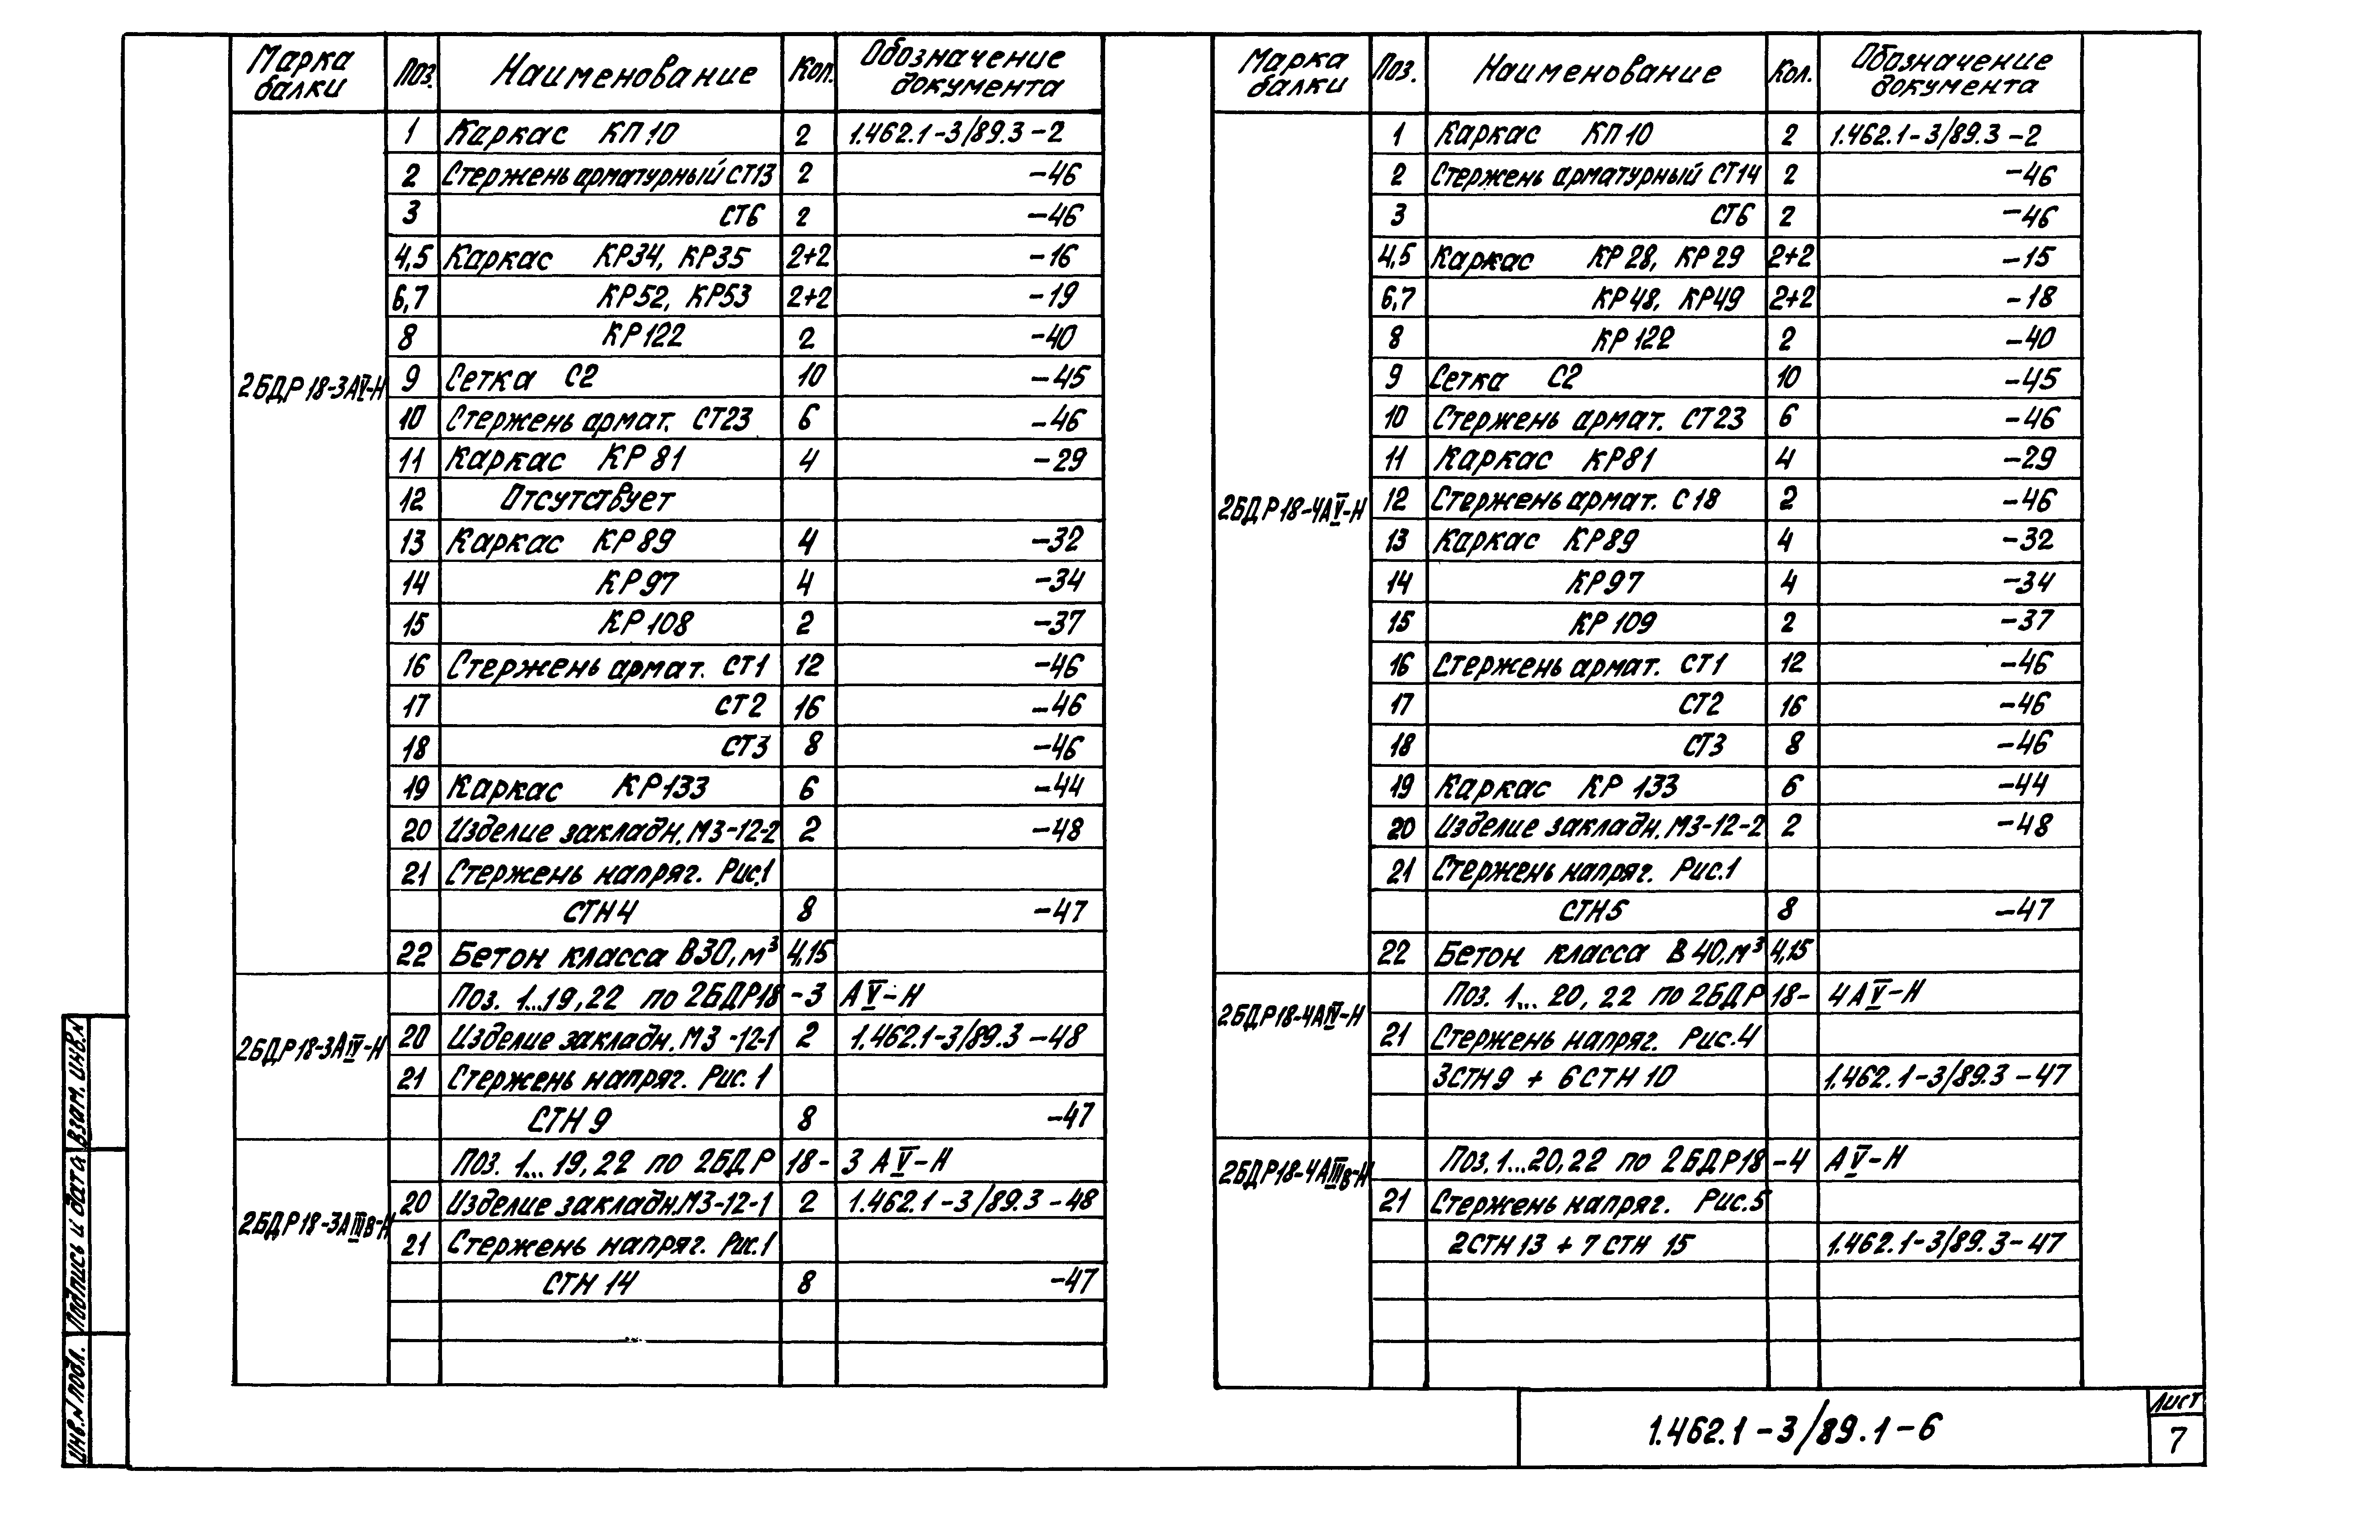 Марка балки Поз. Наименование Кол. Обозначение документа
2БДР18-3АV-Н
1 Каркас КП10 2 1.462.1-3/89.3-2
2 Стержень арматурный СТ13 2 -46
3 СТ6 2 -46
4,5 Каркас КР34, КР35 2+2 -16
6,7 КР52, КР53 2+2 -19
8 КР122 2 -40
9 Сетка С2 10 -45
10 Стержень армат. СТ23 6 -46
11 Каркас КР81 4 -29
12 Отсутствует
13 Каркас КР89 4 -32
14 КР97 4 -34
15 КР108 2 -37
16 Стержень армат. СТ1 12 -46
17 СТ2 16 -46
18 СТ3 8 -46
19 Каркас КР133 6 -44
20 Изделие закладн. МЗ-12-2 2 -48
21 Стержень напряг. Рис.1
СТН4 8 -47
22 Бетон класса В30, м³ 4,15
2БДР18-3АIV-Н
Поз. 1...19,22 по 2БДР18-3 АV-Н
20 Изделие закладн. МЗ-12-1 2 1.462.1-3/89.3-48
21 Стержень напряг. Рис. 1
СТН 9 8 -47
2БДР18-3АIIIв-Н
Поз. 1...19,22 по 2БДР 18-3 АV-Н
20 Изделие закладн. МЗ-12-1 2 1.462.1-3/89.3-48
21 Стержень напряг. Рис.1
СТН 14 8 -47
Марка балки Поз. Наименование Кол. Обозначение документа
2БДР18-4АV-Н
1 Каркас КП10 2 1.462.1-3/89.3-2
2 Стержень арматурный СТ14 2 -46
3 СТ6 2 -46
4,5 Каркас КР28, КР29 2+2 -15
6,7 КР48, КР49 2+2 -18
8 КР122 2 -40
9 Сетка С2 10 -45
10 Стержень армат. СТ23 6 -46
11 Каркас КР81 4 -29
12 Стержень армат. С18 2 -46
13 Каркас КР89 4 -32
14 КР97 4 -34
15 КР109 2 -37
16 Стержень армат. СТ1 12 -46
17 СТ2 16 -46
18 СТ3 8 -46
19 Каркас КР 133 6 -44
20 Изделие закладн. МЗ-12-2 2 -48
21 Стержень напряг. Рис.1
СТН5 8 -47
22 Бетон класса В40, м³ 4,15
2БДР18-4АIV-Н
Поз. 1... 20, 22 по 2БДР 18-4АV-Н
21 Стержень напряг. Рис.4
3СТН9 + 6СТН10 1.462.1-3/89.3-47
2БДР18-4АIIIв-Н
Поз. 1...20,22 по 2БДР18-4 АV-Н
21 Стержень напряг. Рис.5
2СТН13 + 7 СТН 15 1.462.1-3/89.3-47
Инв.N подл. Подпись и дата Взам. инв.N
1.462.1-3/89.1-6
Лист
7